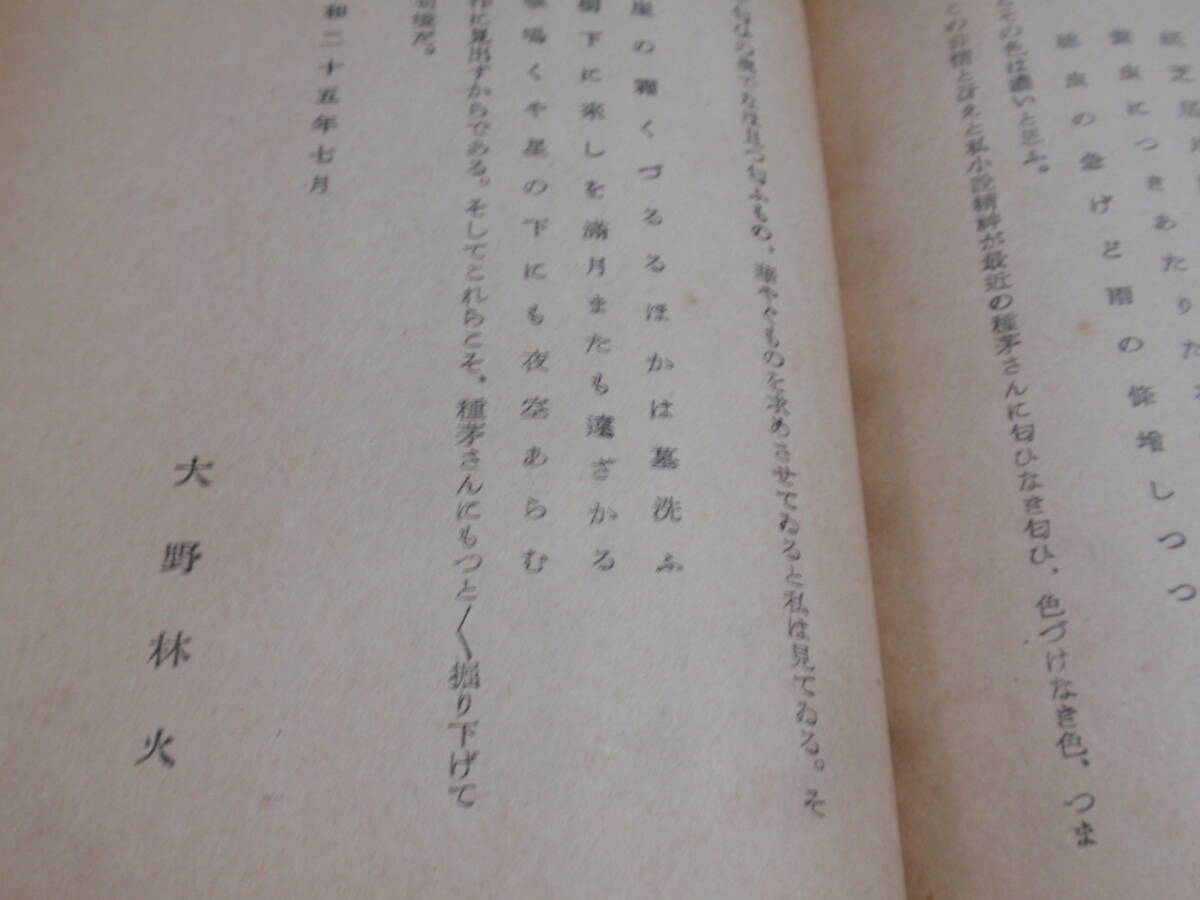 紙芝居
蓑虫につきあたりた
蓑虫の急げど雨の條増しつつ
その色は濃いと思ふ。
この非情と冴えと私小説精神が最近の種茅さんに匂ひなき匂ひ、色づけなき色、つま
もの、華やぐものを求めさせてゐると私は見てゐる。そ
崖の雜くづるるほかは墓洗ふ
樹下に來しを滿月またも遠ざかる
鳴くや星の下にも夜空あらむ
に見出すからである。そしてこれらこそ、種茅さんにもつと〱掘り下げて
境だ。
和二十五年七月
大野林火